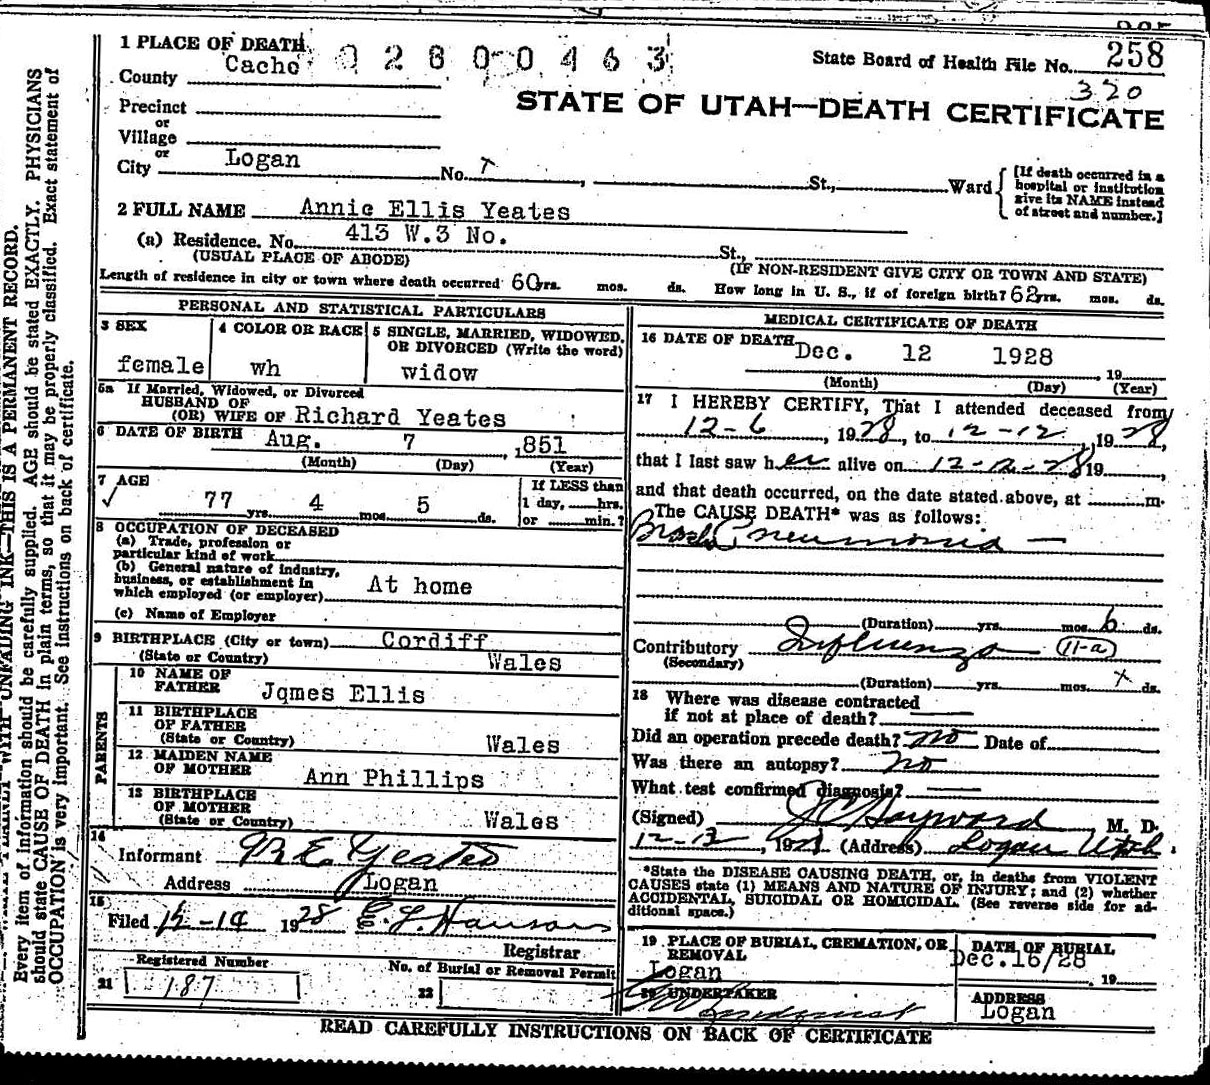 1 PLACE OF DEATH
02800463
State Board of Health File No. 258
320
County Cache
STATE OF UTAH—DEATH CERTIFICATE
Precinct
or
Village
or
City Logan No. St., Ward
[If death occurred in a
hospital or institution
give its NAME instead
of street and number.]
2 FULL NAME Annie Ellis Yeates
(a) Residence. No. 413 W.3 No. St.,
(USUAL PLACE OF ABODE) (IF NON-RESIDENT GIVE CITY OR TOWN AND STATE)
Length of residence in city or town where death occurred 60 yrs. mos. ds. How long in U. S., if of foreign birth? 62 yrs. mos. ds.
PERSONAL AND STATISTICAL PARTICULARS
3 SEX
female
4 COLOR OR RACE
wh
5 SINGLE, MARRIED, WIDOWED,
OR DIVORCED (Write the word)
widow
5a If Married, Widowed, or Divorced
HUSBAND OF
(OR) WIFE OF Richard Yeates
6 DATE OF BIRTH Aug. 7 ,1851
(Month) (Day) (Year)
7 AGE
✓ 77 yrs. 4 mos. 5 ds.
If LESS than
1 day, hrs.
or min.?
8 OCCUPATION OF DECEASED
(a) Trade, profession or
particular kind of work
(b) General nature of industry,
business, or establishment in
which employed (or employer) At home
(c) Name of Employer
9 BIRTHPLACE (City or town) Cordiff
(State or Country) Wales
PARENTS
10 NAME OF
FATHER Jqmes Ellis
11 BIRTHPLACE
OF FATHER
(State or Country) Wales
12 MAIDEN NAME
OF MOTHER Ann Phillips
13 BIRTHPLACE
OF MOTHER
(State or Country) Wales
14
Informant Yeates
Address Logan
15
Filed 12-14 1928
Registrar
Registered Number
21 187
No. of Burial or Removal Permit
22
MEDICAL CERTIFICATE OF DEATH
16 DATE OF DEATH Dec. 12 1928
, 19
(Month) (Day) (Year)
17 I HEREBY CERTIFY, That I attended deceased from
12-6, 1928, to 12-12, 1928,
that I last saw her alive on 12-12-28 19
and that death occurred, on the date stated above, at m.
The CAUSE DEATH* was as follows:
Broncho Pneumonia —
(Duration) yrs. mos. 6 ds.
Contributory Influenza 11-a
(Secondary)
(Duration) yrs. mos. x ds.
18 Where was disease contracted
if not at place of death?
Did an operation precede death? no Date of
Was there an autopsy? no
What test confirmed diagnosis?
(Signed) Hayward, M. D.
12-13, 1928 (Address) Logan Utah.
*State the DISEASE CAUSING DEATH, or, in deaths from VIOLENT
CAUSES state (1) MEANS AND NATURE OF INJURY; and (2) whether
ACCIDENTAL, SUICIDAL OR HOMICIDAL. (See reverse side for ad-
ditional space.)
19 PLACE OF BURIAL, CREMATION, OR
REMOVAL
Logan
DATE OF BURIAL
Dec.16/28
19
20 UNDERTAKER
ADDRESS
Logan
READ CAREFULLY INSTRUCTIONS ON BACK OF CERTIFICATE
WITH UNFADING INK—THIS IS A PERMANENT RECORD.
Every item of information should be carefully supplied. AGE should be stated EXACTLY. PHYSICIANS
should state CAUSE OF DEATH in plain terms, so that it may be properly classified. Exact statement of
OCCUPATION is very important. See instructions on back of certificate.